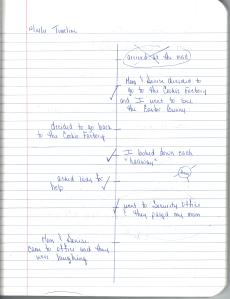 Timeline
arrived at the mall
Mom & Denise decided to
go to the Cookie Factory
and I went to see
the Easter Bunny
decided to go back
to the Cookie Factory
I looked down each
"hallway"
asked lady to
help
went to Security Office
& they paged my mom
Mom & Denise
came to office and they
were laughing